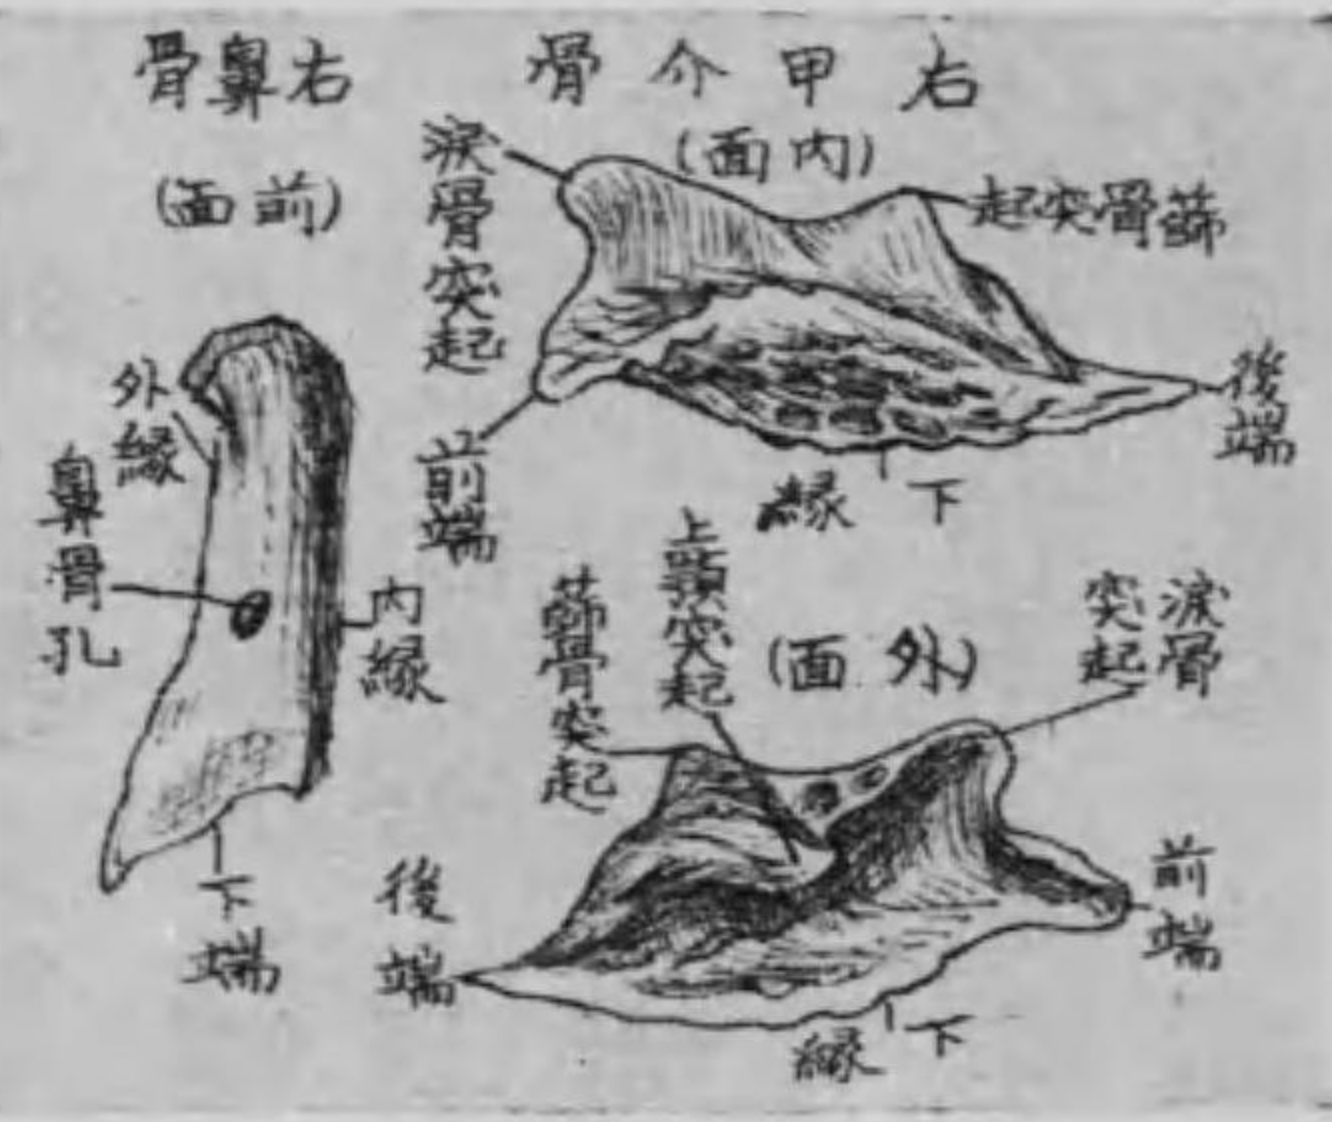 右甲介骨
(内面)
淚骨突起
篩骨突起
前端
後端
下縁
右鼻骨
(前面)
外縁
鼻骨孔
内縁
下端
(外面)
淚骨
突起
上顎突起
篩骨突起
前端
後端
下縁